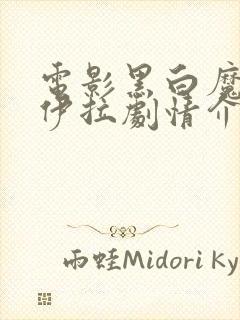 電影黑白魔
伊拉劇情介
雨蛙Midori Ky